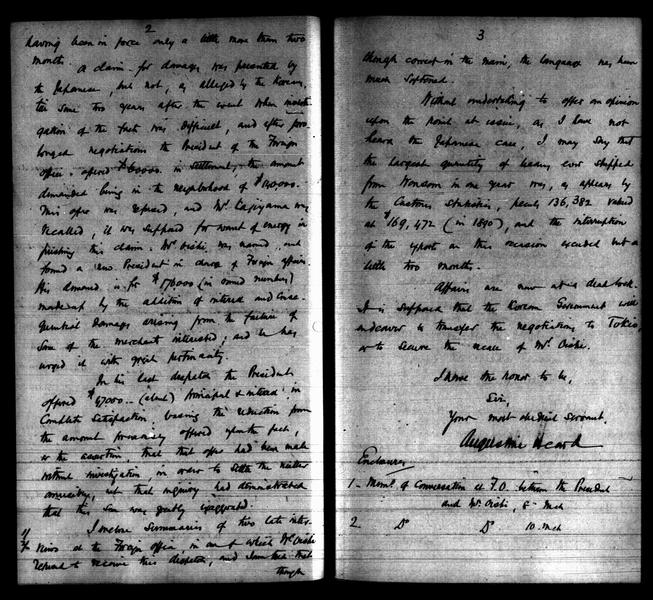 2
having been in force only a little more than two
month.
A claim for damages was presented by
the Japanese, but not, as alleged by the Koreans,
till some two years after the event when investi-
gation of the facts was difficult, and after pro-
longed negotiations the President of the Foreign
office offered $60000. in settlement, the amount
demanded being in the neighborhood of
This offer was refused, and Mr. Kajiyama was
recalled, it was supposed for want of energy in
pushing this claim. Mr. Oishi was named, and
found a new President in charge of Foreign affairs.
His demand is for $176000 (in round numbers)
made up by the addition of interest and conse-
quential damages arising from the failure of
some of the merchants interested; and he has
urged it with great pertinacity.
In his last despatch the President
offered $47000.- (about) principal & interest in
complete satisfaction, basing the reduction from
the amount previously offered upon the fact,
or the assertion, that that offer had been made
without investigation in order to settle the matter
amicably, but that inquiry had demonstrated
that this sum was greatly exaggerated.
I inclose Summaries of two late inter-
views at the Foreign office, in one of which Mr. Oishi
refused to receive this despatch, and I am told that
though
3
though correct in the main, the language has been
much softened.
Without undertaking to offer an opinion
upon the point at issue, as I have not
heard the Japanese case, I may say that
the largest quantity of beans ever shipped
from Wonsan in one year was, as appears by
the Customs Statistics, peculs 136,382 valued
at $169,472 (in 1890), and the interruption
of the export on this occasion exceeded but a
little two months.
Affairs are now at a dead lock.
It is supposed that the Korean Government will
endeavor to transfer the negotiations to Tokio,
or to secure the recall of Mr. Oishi.
I have the honor to be,
Sir,
Your most obedient Servant,
Augustine Heard
Enclosures
1 - Memt. of Conversation at F.O. between the President
and Mr. Oishi, 8 - Mch
2 Do Do 10. Mch